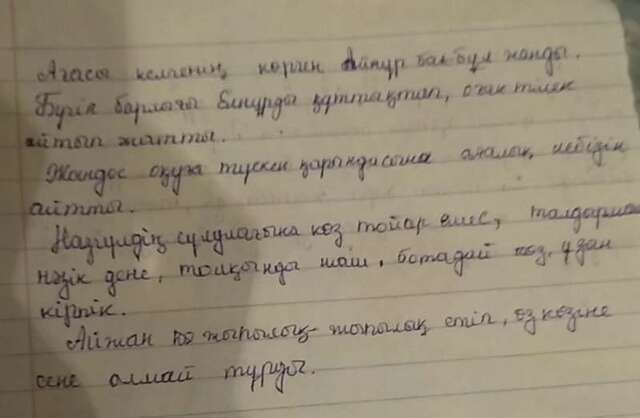 Ағасы келгенің көрген Айнұр бал бұл жанды.
Бүгін барлығы Бинұрды құттықтап, оған тілек
айтып жатты.
Жандос оқуға түскен қарындасына аналық лебізін
айтты.
Назгүлдің сұлулығына көз тояр емес, талдырмаш
нәзік дене, толқынды шаш, ботадай көз, ұзан
кірпік.
Айжан жыпылық-жыпылық етіп, өз көзіне
сене алмай тұрды.